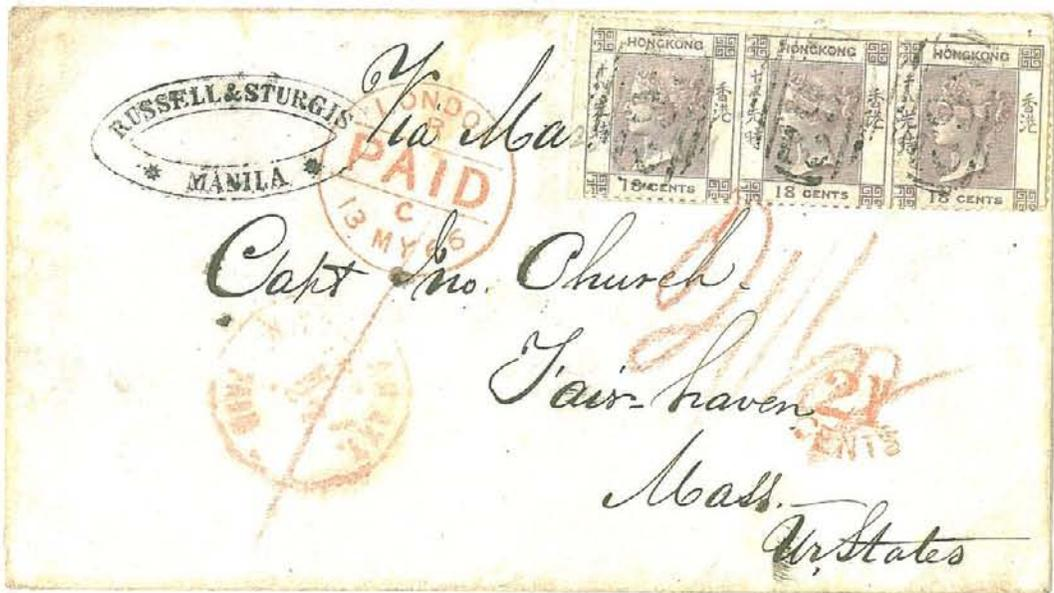 RUSSELL & STURGIS
MANILA
Via Mar
LONDON
PAID
C
13 MY 66
HONGKONG
香港
18 CENTS
HONGKONG
香港
18 CENTS
HONGKONG
香港
18 CENTS
Capt Jno. Church.
Fair-haven
Mass.
Un. States
21
CENTS
PAID